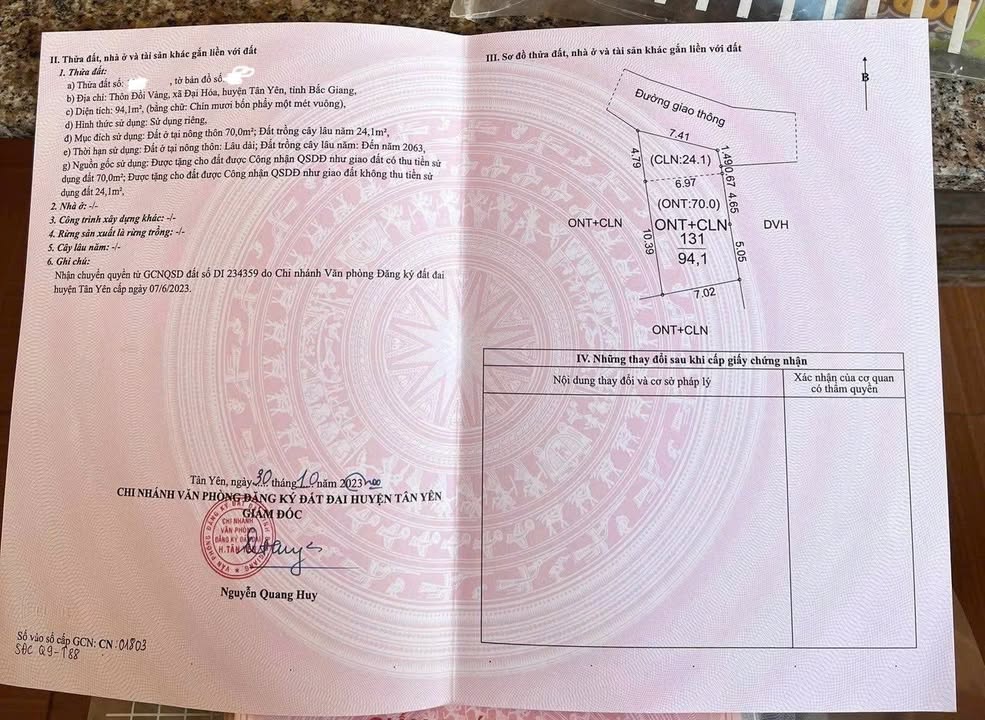 II. Thửa đất, nhà ở và tài sản khác gắn liền với đất
1. Thửa đất:
a) Thửa đất số: , tờ bản đồ số:
b) Địa chỉ: Thôn Đồi Vàng, xã Đại Hóa, huyện Tân Yên, tỉnh Bắc Giang,
c) Diện tích: 94,1m², (bằng chữ: Chín mươi bốn phẩy một mét vuông),
d) Hình thức sử dụng: Sử dụng riêng,
đ) Mục đích sử dụng: Đất ở tại nông thôn 70,0m²; Đất trồng cây lâu năm 24,1m²,
e) Thời hạn sử dụng: Đất ở tại nông thôn: Lâu dài; Đất trồng cây lâu năm: Đến năm 2063,
g) Nguồn gốc sử dụng: Được tặng cho đất được Công nhận QSDĐ như giao đất có thu tiền sử
dụng đất 70,0m²; Được tặng cho đất được Công nhận QSDĐ như giao đất không thu tiền sử
dụng đất 24,1m²,
2. Nhà ở: -/-
3. Công trình xây dựng khác: -/-
4. Rừng sản xuất là rừng trồng: -/-
5. Cây lâu năm: -/-
6. Ghi chú:
Nhận chuyển quyền từ GCNQSD đất số DI 234359 do Chi nhánh Văn phòng Đăng ký đất đai
huyện Tân Yên cấp ngày 07/6/2023.
Tân Yên, ngày 30 tháng 10 năm 2023
CHI NHÁNH VĂN PHÒNG ĐĂNG KÝ ĐẤT ĐAI HUYỆN TÂN YÊN
GIÁM ĐỐC
CHI NHÁNH
VĂN PHÒNG
ĐĂNG KÝ ĐẤT ĐAI
H.TÂN
Nguyễn Quang Huy
Số vào sổ cấp GCN: CN:01803
SĐC Q9-T88
III. Sơ đồ thửa đất, nhà ở và tài sản khác gắn liền với đất
B
Đường giao thông
7.41
4.79
(CLN:24.1)
1.49
0.67
6.97
4.65
(ONT:70.0)
ONT+CLN
ONT+CLN
DVH
131
10.39
5.05
94,1
7.02
ONT+CLN
IV. Những thay đổi sau khi cấp giấy chứng nhận
Nội dung thay đổi và cơ sở pháp lý
Xác nhận của cơ quan
có thẩm quyền